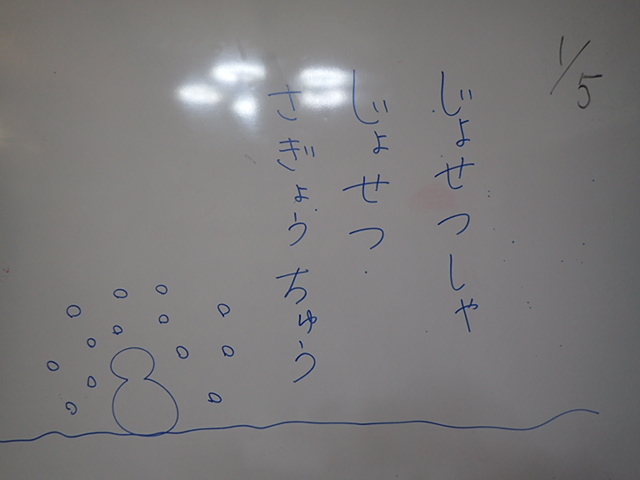 1/5
じょせつしゃ
じょせつ
さぎょうちゅう